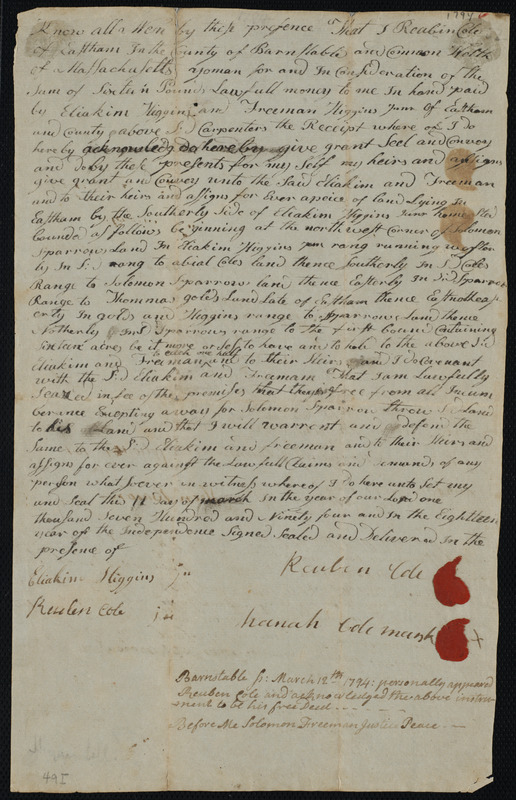 1794
Know all Men by these presence That I Reuben Cole
of Eastham In the County of Barnstable and Common Wealth
of Massachusetts yoman for and In Consideration of the
Sum of Sixteen Pounds Lawfull money to me In hand paid
by Eliakim Higgins and Freeman Higgins Junr of Eastham
and County above Sd Carpenters the Receipt where of I do
hereby acknowledg do hereby give grant Seel and Convey
and do by these presents for my Self my heirs and assigns
give grant and Convey unto the Said Eliakim and Freeman
and to their heirs and assigns for Ever a peice of land Lying In
Eastham by the Southerly Side of Eliakim Higgins Junr home
bounded as follows beginning at the north west Corner of Solomon
Sparrows Land In Eliakim Higgins Jun rang running westler
ly In Sd rang to abial Coles land thence Southerly In Sd Coles
Range to Solomon Sparrows land thence Easterly In Sd Sparrow
Range to Thommas golds Land Late of Eastham thence Eastnothes
erly In golds and Higgins range to Sparrows Land thence
Notherly In Sd Sparrows range to the first bound Containing
Sixteen acres be it more or less to have and to hold to the above Sd
Eliakim and Freeman to each one half and to their Heirs and I do Covenant
with the Sd Eliakim and Freamam That I am Lawfully
Seazed in fee of the premises that they are free from all Incum
berance Excepting a way for Solomon Sparrow threw Sd Land
to his Land and that I will warrent and defend the
Same to the Sd Eliakim and Freeman and to their Heirs and
assigns for ever against the Lawfull Claims and demands of any
person what so ever in witness whereof I do here unto Set my
and Seal this 11 day of march In the year of our Lord one
thousand Seven Hundred and Ninety four and In the Eighteen
year of the Independence Signed Sealed and Delivered In the
presence of
Eliakim Higgins
Reuben Cole
Reuben Cole
Hanah Cole mark X
Barnstable Ss: March 12th 1794: personally appeard
Reuben Cole and acknowledged the above instru-
ment to be his free Deed
Before Me Solomon Freeman Justice Peace
49I